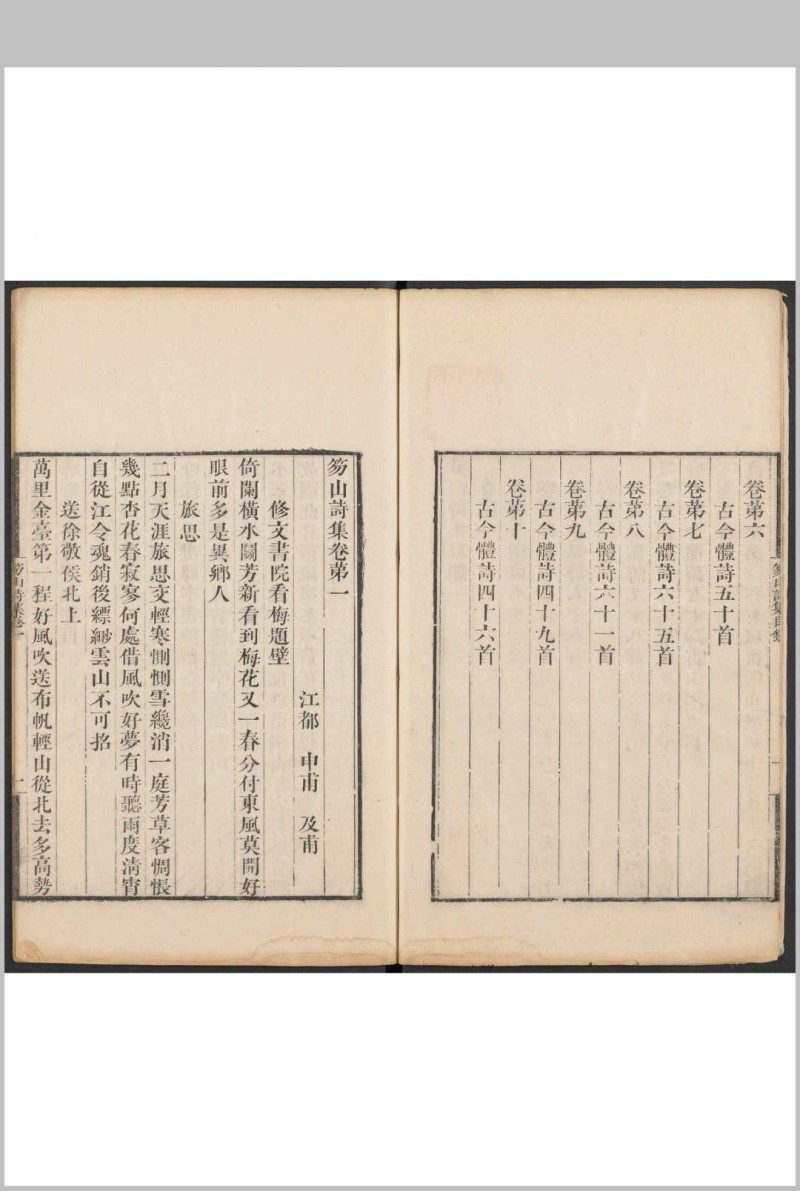 卷苐六
古今體詩五十首
卷苐七
古今體詩六十五首
卷苐八
古今體詩六十一首
卷苐九
古今體詩四十九首
卷苐十
古今體詩四十六首
笏山詩集卷苐一
江都 申甫 及甫
修文書院看梅題壁
倚闌橫水鬪芳新看到梅花又一春分付東風莫開好
眼前多是異鄉人
旅思
二月天涯旅思交輕寒惻惻雪纔消一庭芳草客惆悵
幾點杏花春寂寥何處借風吹好夢有時聽雨度淸宵
自從江令魂銷後縹緲雲山不可招
送徐敬侯北上
萬里金臺第一程好風吹送布帆輕山從北去多高勢
笏山詩集卷一
一